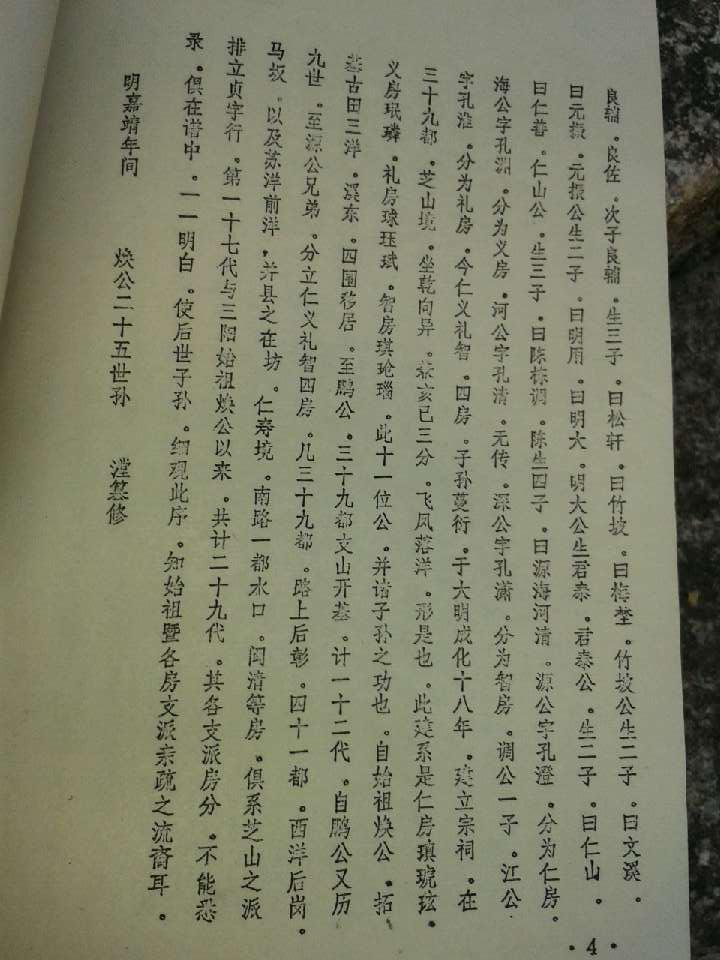 良辅．良佐．次子良辅．生三子．曰松轩．曰竹坡．曰梅埜．竹坡公生二子．曰文溪．
曰元振．元振公生二子．曰明用．曰明大．明大公生君泰．君泰公．生二子．曰仁山．
曰仁善．仁山公．生三子．曰陈栋调．陈生四子．曰源海河清．源公字孔澄．分为仁房．
海公字孔渊．分为义房．河公字孔清．无传．深公字孔潇．分为智房．调公一子．江公
字孔淮．分为礼房．今仁义礼智．四房．子孙蔓衍．于大明成化十八年．建立宗祠．在
三十九都．芝山境．坐乾向异．兼亥已三分．飞凤落洋．形是也．此建系是仁房瑱琥玹．
义房珉璘．礼房球珏珷．智房琪玱瑙．此十一位公．并诸子孙之功也．自始祖焕公．拓
基古田三洋．溪东．四围移居．至鹏公．三十九都文山开基．计一十二代．自鹏公又历
九世．至源公兄弟．分立仁义礼智四房．几三十九都．路上后彰．四十一都．西洋后岗．
马坂．以及苏洋前洋．并县之在坊．仁寿境．南路一都水口．闽清等房．俱系芝山之派
排立贞字行．第一十七代与三阳始祖焕公以来．共计二十九代．其各支派房分．不能悉
录．俱在谱中．一一明白．使后世子孙．细观此序．知始祖暨各房支派亲疏之流裔耳．
明嘉靖年间 焕公二十五世孙 滢篡修
·4·